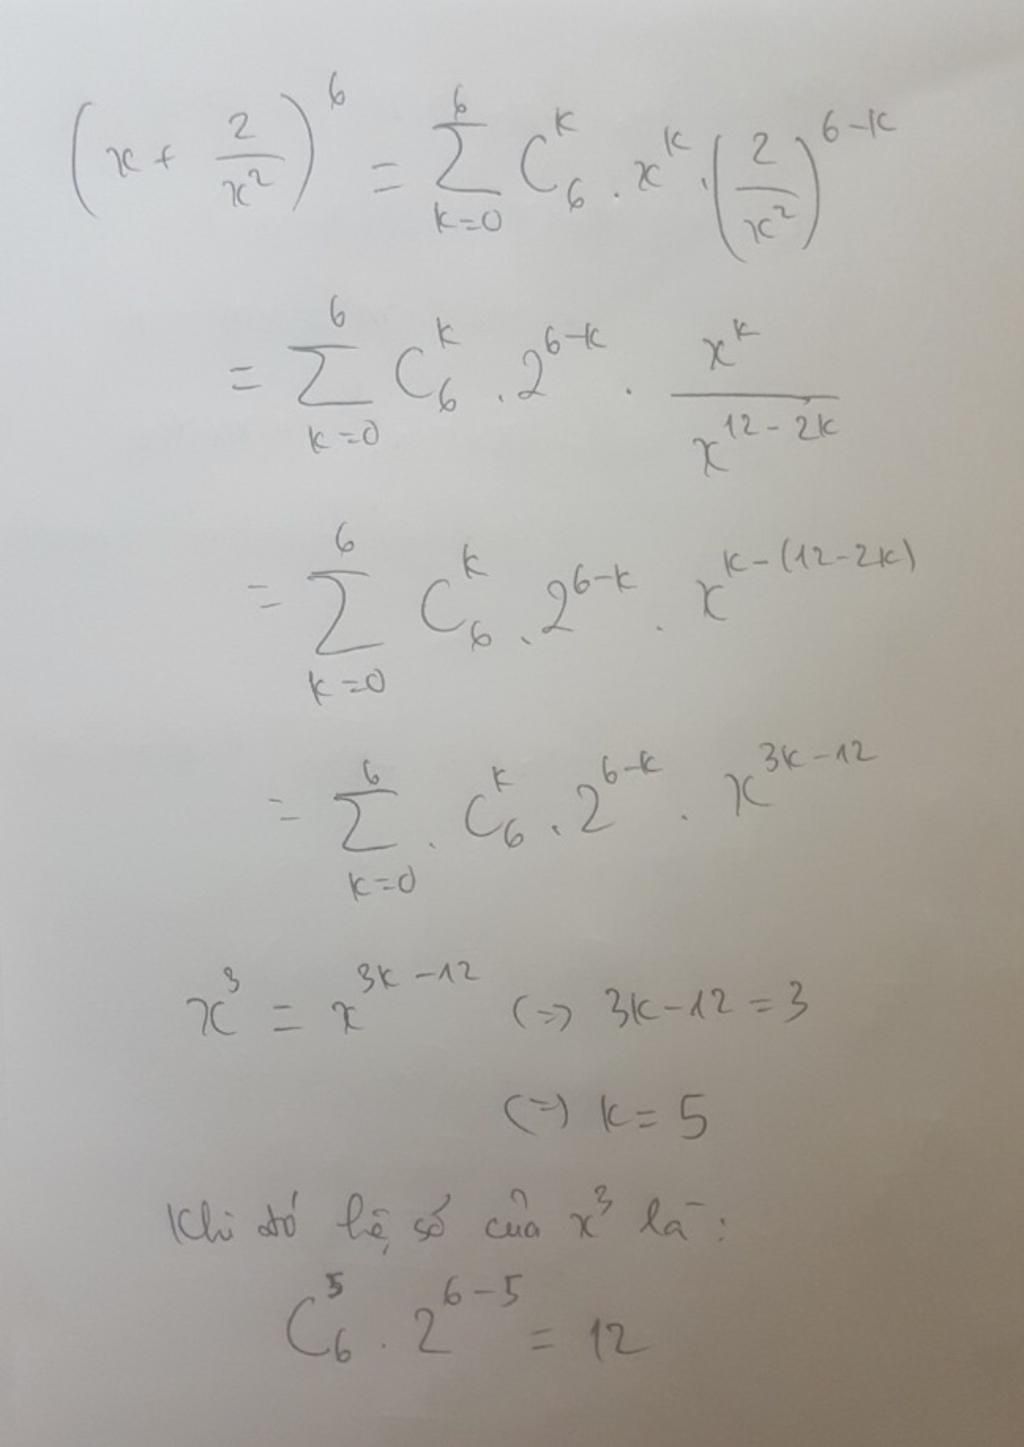 (x + 2/x²)^6 = ∑_{k=0}^{6} C_6^k . x^k . (2/x²)^{6-k}
= ∑_{k=0}^{6} C_6^k . 2^{6-k} . x^k/x^{12-2k}
= ∑_{k=0}^{6} C_6^k . 2^{6-k} . x^{k-(12-2k)}
= ∑_{k=0}^{6} . C_6^k . 2^{6-k} . x^{3k-12}
x³ = x^{3k-12} (=) 3k-12 = 3
(=) k = 5
Khi đó hệ số của x³ là :
C_6^5 . 2^{6-5} = 12